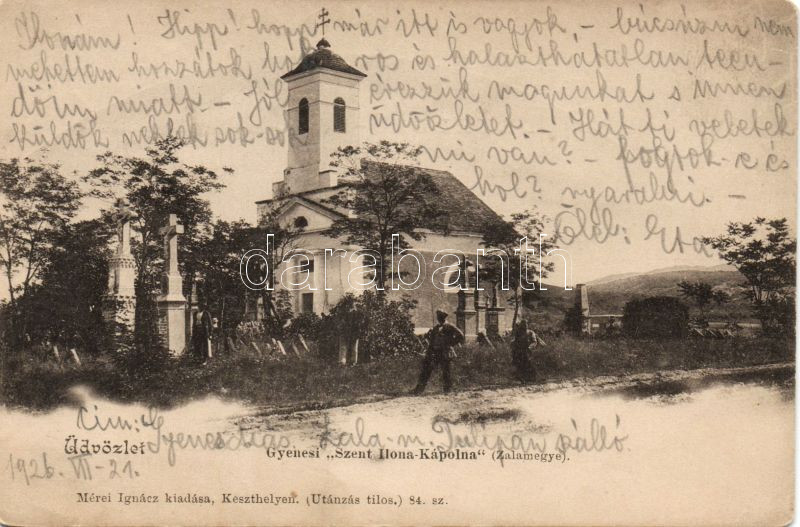 Ilonám! Hipp! hopp már itt is vagyok – búcsúzni nem
mehettem hozzátok ros és halaszthatatlan teen-
dőim miatt – jól érezzük magunkat s innen
küldök nektek sok-sok üdvözletet. – Hát ti veletek
mi van? – fogtok-e és
hol? nyaralni. –
Ölel: Eta
darabanth
Cím: Gyenesdiás Zala-m. Tulipán szálló.
Üdvözlet
Gyenesi „Szent Ilona-Kápolna“ (Zalamegye).
1926. VII-21.
Mérei Ignácz kiadása, Keszthelyen. (Utánzás tilos.) 84. sz.